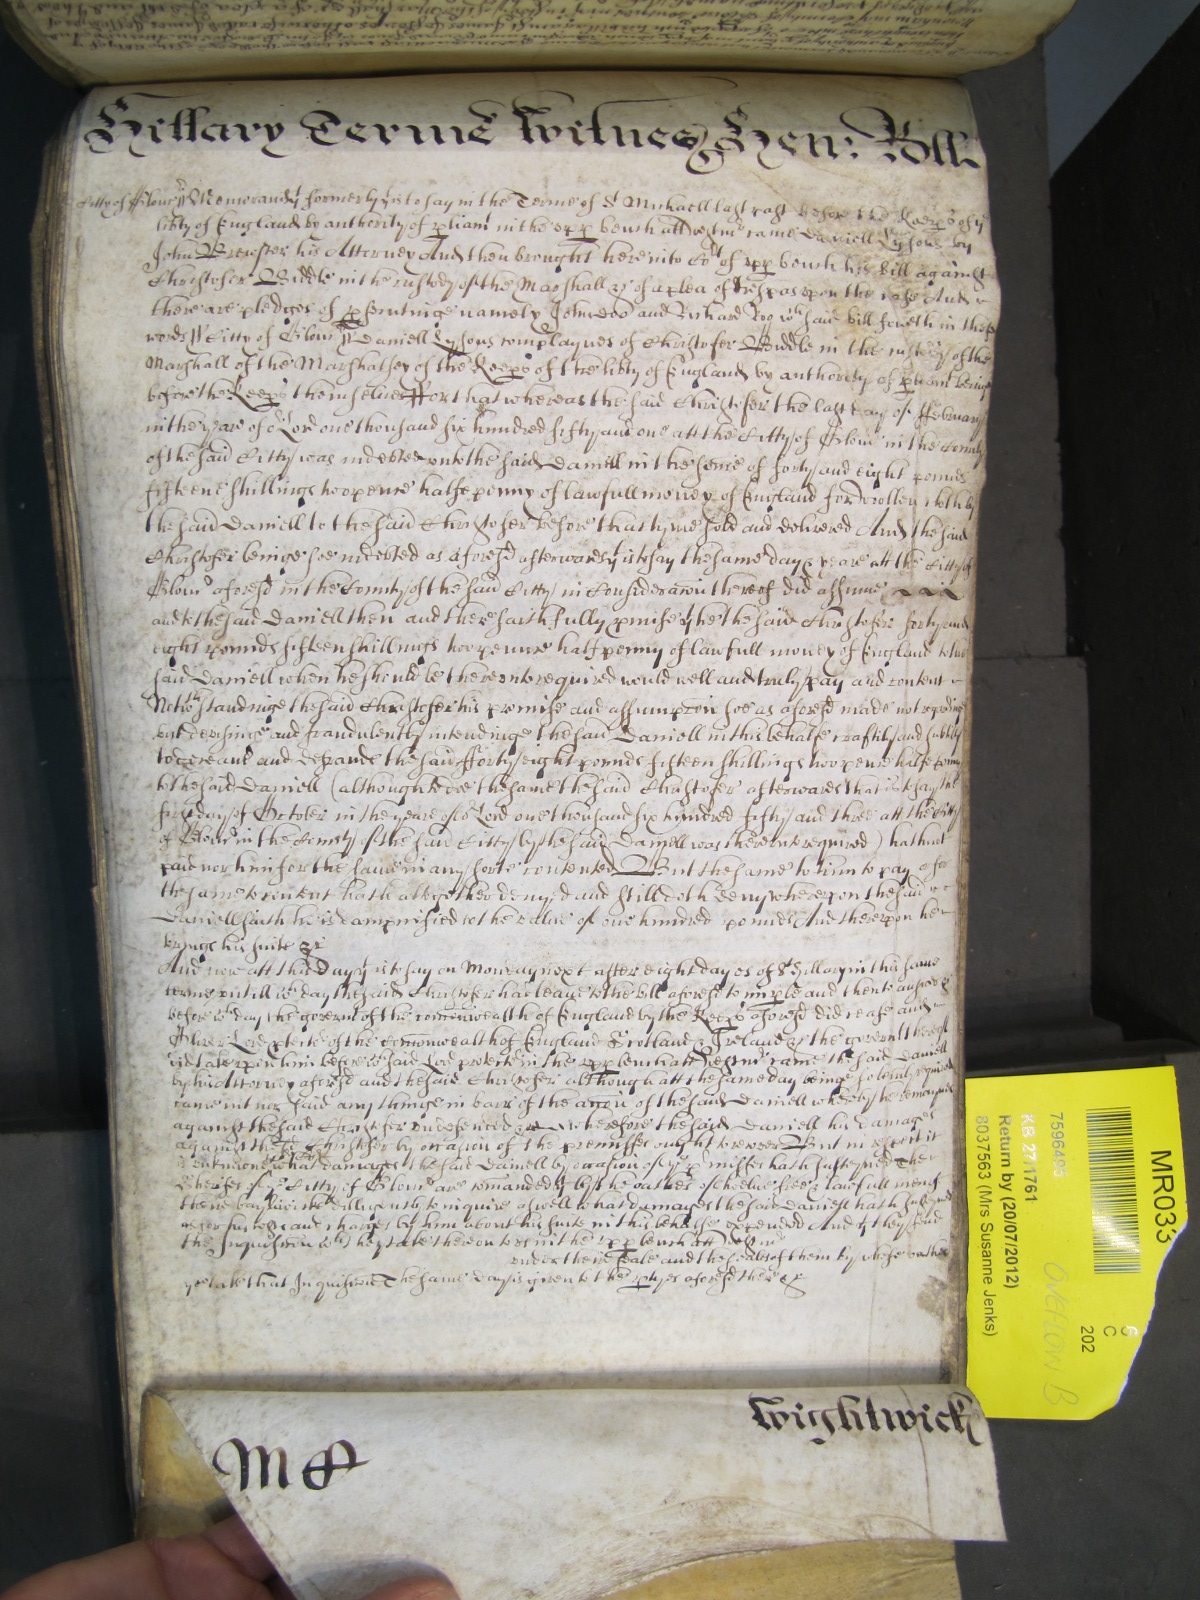 Hillary Terme Witnes Hen: Rolle
Citty of Glouc ss Memorand yt formerly yt is to say in the Terme of St Michaell last past before the Keeps of ye
libty of England by authority of pliamt in the upp bench att Westmr came Daniell Lysons by
John Brewster his Attorney And then brought here into Cort of upp bench his bill against
Christofer Biddle in the custody of the Marshall &c of a plea of trespas upon the case And
there are pledges of psecutinge namely John Doo and Richard Roo wch said bill foweth in these
words ss Citty of Glouc ss Daniell Lysons complaynes of Christofer Biddle in the custody of the
Marshall of the Marshalsey of the Keeps of the libty of England by authority of pliamt beinge
before the Keeps themselves ffor that whereas the said Christofer the last day of ffebruary
in the yeare of or Lord one thousand six hundred fifty and one att the Citty of Glouc in the County
of the said Citty was indebted unto the said Daniell in the some of forty and eight pounds
fifteene shillings twopence halfe penny of lawfull money of England for wollen cloth by
the said Daniell to the said Christofer before that tyme sold and delivered And the said
Christofer beinge soe indebted as aforesd afterwards yt is to say the same day & yeare att the Citty of
Glouc aforesd in the County of the said Citty in Consideracon thereof did assume
and to the said Daniell then and there faithfully pmise yt he the said Christofer forty and
eight pounds fifteen shillings twopence halfpenny of lawfull money of England to the
said Daniell when he should be thereunto required would well and truly pay and content
Notwthstandinge the said Christofer his promise and assumpcon soe as aforesd made not regardinge
but devisinge and fraudulently intendinge the said Daniell in this behalfe craftily and subtilly
to deceave and defraude the said fforty eight pounds fifteen shillings twopence halfe penny
to the said Daniell (although to doe the same the said Christofer afterwards that is to say the
first day of October in the yeare of or Lord one thousand six hundred fifty and three att the Citty
of Glouc in the County of the said Citty by the said Daniell was thereunto required) hath not
paid nor him for the same in any sorte contented But the same to him to pay or for
the same to content hath altogether denyed and still doth deny whereupon the said
Daniell saith he is dampnified to the value of one hundred pounds And thereupon he
brings his suite &c
And now att this day yt is to say on Monday next after eight dayes of St Hillary in this same
terme untill wch day the said Christofer had leave to the bill aforesd to imple and then to answer &c
before wch day the govermt of the comonwealth of England by the Keeps aforesd did cease and
Oliver Lord ptector of the comonwealth of England Scotland & Ireland &c the govermt thereof
did take upon him before wch said Lord ptector in the upp bench att Westmr came the said Daniell
by his Attorney aforesd and the said Christofer although att the same day beinge solemly required
came not nor said any thinge in barr of the accon of the said Daniell whereby he remayned
against the said Christofer undefended &c wherefore the said Daniell his damages
against the sd Christofer by occasion of the premisses ought to recover But in respect it
is unknowne what damages the said Daniell by occasion of ye pmisses hath susteyned Ther
Sheriffes of ye Citty of Glouc are comanded yt by the oathes of twelve free & lawfull men of
their bayliwick dilligently to inquire aswell what damages the said Daniell hath susteyned
as for his costs and charges by him about his suite in this behalfe expended And yt they send
the Inquisicon wch they take thereon to us in the upp bench att Westmr
under their seale and the seales of them by whose oathes
ye take that Inquisicon The same day is given to the ptyes aforesd there &c
Wightwick
MR033
202
C
7596495
KB 27/1761
Return by (20/07/2012)
8037563 (Mrs Susanne Jenks)
OVERFLOW B